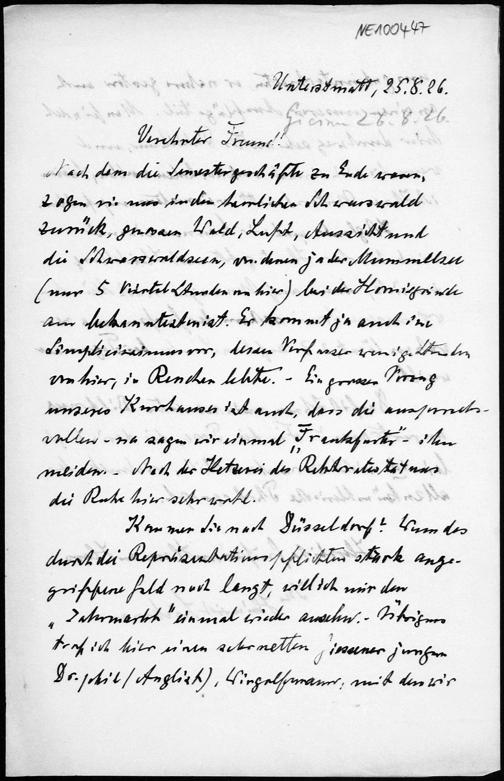 NE100447
Unterstmatt, 25.8.26.
Giessen 26.8.26.
Verehrter Freund!
Nachdem die Semestergeschäfte zu Ende waren,
zogen wir uns in den herrlichen Schwarzwald
zurück, geniessen Wald, Luft, Aussicht und
die Schwarzwaldseen, von denen ja der Mummelsee
(nur 5 Viertelstunden von hier) bei der Hornisgrinde
am bekanntesten ist. Er kommt ja auch im
Simplicissimus vor, dessen Verfasser wenige Stunden
von hier, in Renchen lebte. - Ein grosser Vorzug
unseres Kurhauses ist auch, dass die anspruchs-
vollen - na sagen wir einmal „Frankfurter" - ihn
meiden. - Nach der Hetzerei des Rektorates tut uns
die Ruhe hier sehr wohl.
Kommen Sie nach Düsseldorf? Wenn das
durch die Repräsentationspflichten stark ange-
griffene Geld noch langt, will ich mir den
„Jahrmarkt" einmal wieder ansehn. - Übrigens
traf ich hier einen sehr netten Giessener jungen
Dr. phil (Anglist), Wingolfsmann, mit dem wir